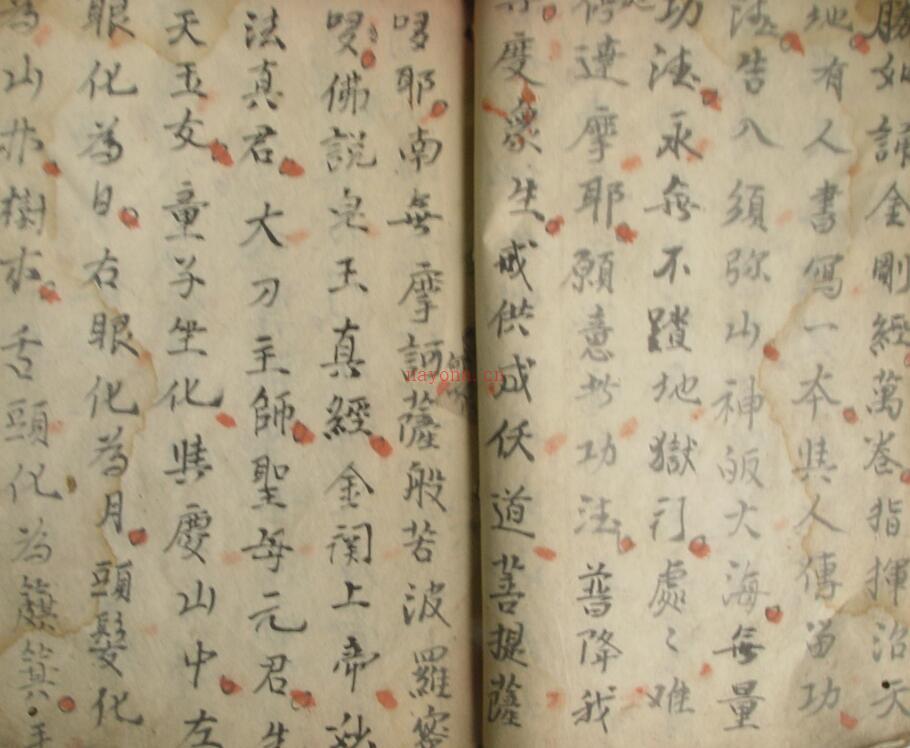 勝如誦金剛經萬卷指揮治天
地有人書寫一本與人傳當功
法告入須弥山神皈大海無量
功法永無不踏地獄行處〻难
達摩耶願意此功法普降我
度衆生戒供成仸道菩提薩
哆耶南無摩訶薩般若波羅密
哆佛說皂王真經金闕上帝妙
法真君大刀主師聖母元君生
天玉女童子坐化與慶山中左
眼化為日右眼化為月頭髮化
為山林樹木舌頭化為簸箕手
nayona.cn